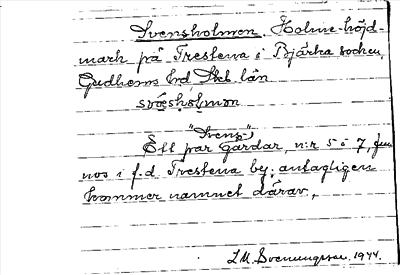 Svensholmen Holme-höjd-
mark på Trestena i Bjärka socken,
Gudhems hrd Skb. län
svæ̨nshålmən
"Svens-"
Ett par gårdar, n:r 5 o 7, fun
nos i f.d Trestena by; antagligen
kommer namnet därav,
L.M. Svenungsson. 1944.